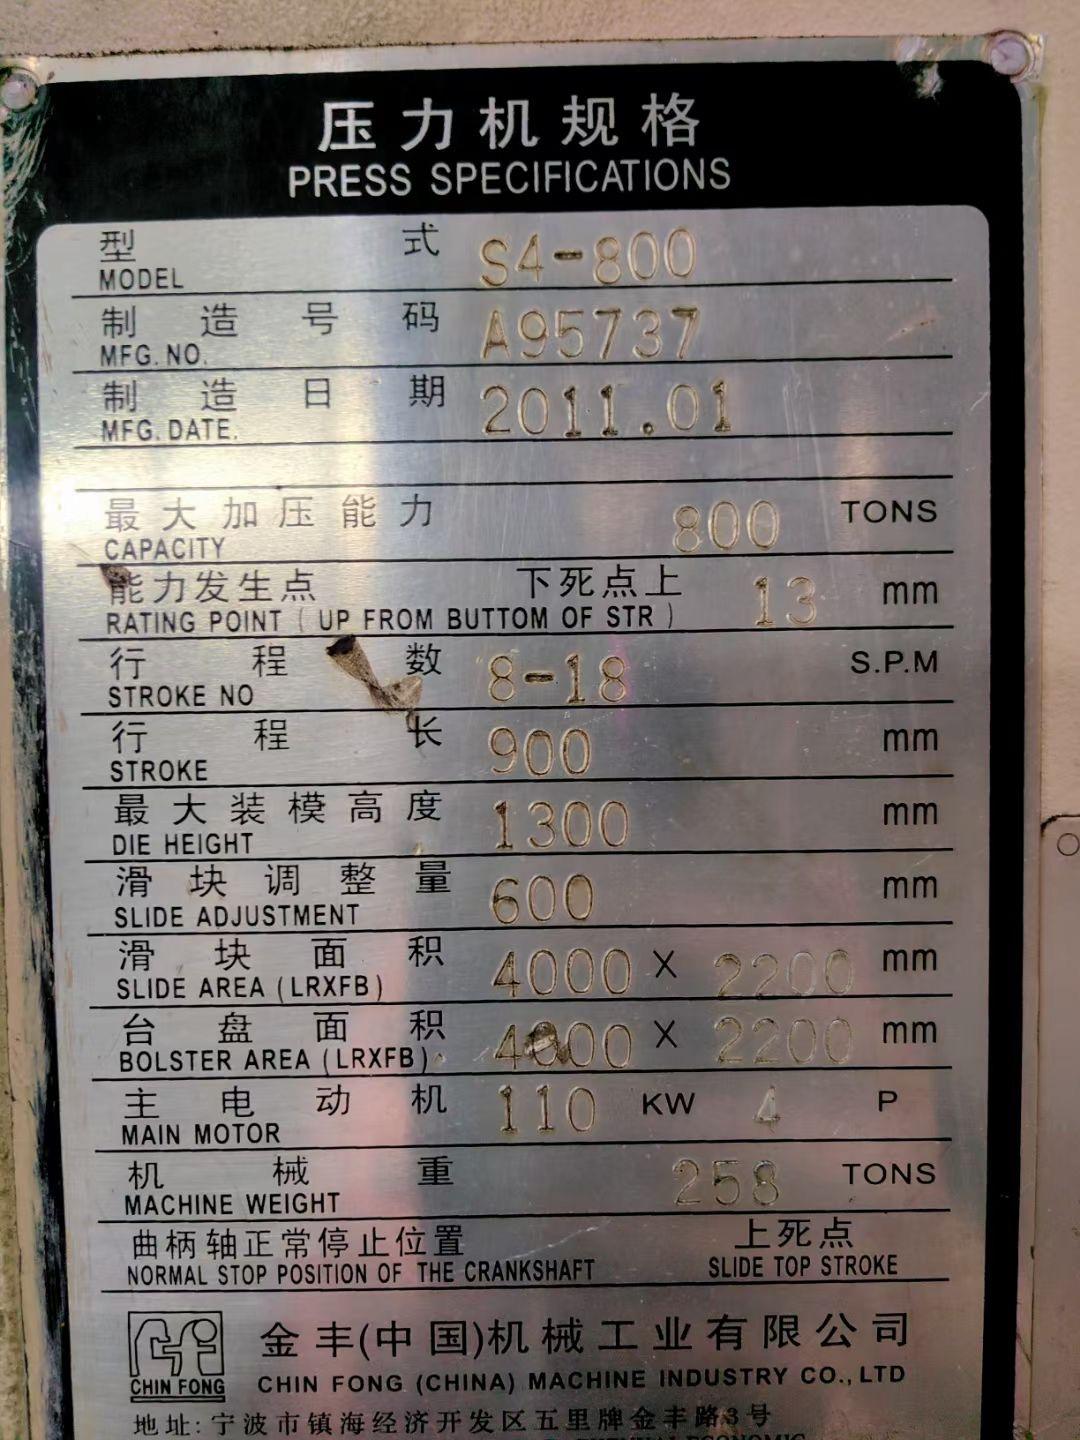 压力机规格
PRESS SPECIFICATIONS
型式 S4-800
MODEL
制造号码 A95737
MFG. NO.
制造日期 2011.01
MFG. DATE.
最大加压能力 800 TONS
CAPACITY
能力发生点 下死点上 13 mm
RATING POINT ( UP FROM BUTTOM OF STR )
行程数 8-18 S.P.M
STROKE NO
行程长 900 mm
STROKE
最大装模高度 1300 mm
DIE HEIGHT
滑块调整量 600 mm
SLIDE ADJUSTMENT
滑块面积 4000 X 2200 mm
SLIDE AREA (LRXFB)
台盘面积 4000 X 2200 mm
BOLSTER AREA (LRXFB)
主电动机 110 KW 4 P
MAIN MOTOR
机械重 258 TONS
MACHINE WEIGHT
曲柄轴正常停止位置 上死点
NORMAL STOP POSITION OF THE CRANKSHAFT SLIDE TOP STROKE
金丰(中国)机械工业有限公司
CHIN FONG CHIN FONG (CHINA) MACHINE INDUSTRY CO., LTD
地址: 宁波市镇海经济开发区五里牌金丰路3号